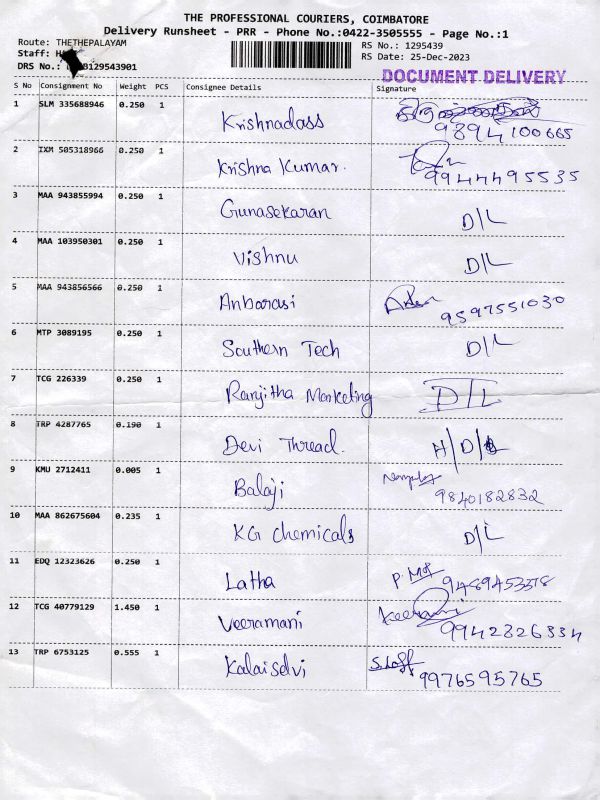 THE PROFESSIONAL COURIERS, COIMBATORE
Delivery Runsheet - PRR - Phone No.:0422-3505555 - Page No.:1
Route: THETHEPALAYAM RS No.: 1295439
Staff: RS Date: 25-Dec-2023
DRS No.: B129543901 DOCUMENT DELIVERY
S No Consignment No Weight PCS Consignee Details Signature
1 SLM 335688946 0.250 1 Krishnadass 9894100665
2 IXM 505318966 0.250 1 Krishna Kumar. 9944495535
3 MAA 943855994 0.250 1 Gunasekaran D/L
4 MAA 103950301 0.250 1 Vishnu D/L
5 MAA 943856566 0.250 1 Anbarasi 9597551030
6 MTP 3089195 0.250 1 Southern Tech D/L
7 TCG 226339 0.250 1 Ranjitha Marketing D/L
8 TRP 4287765 0.190 1 Devi Thread. H/D/
9 KMU 2712411 0.005 1 Balaji 9840182832
10 MAA 862675604 0.235 1 KG Chemicals D/L
11 EDQ 12323626 0.250 1 Latha
12 TCG 40779129 1.450 1 Veeramani Veeramani 9942326334
13 TRP 6753125 0.555 1 Kalaiselvi Staff 9976595765